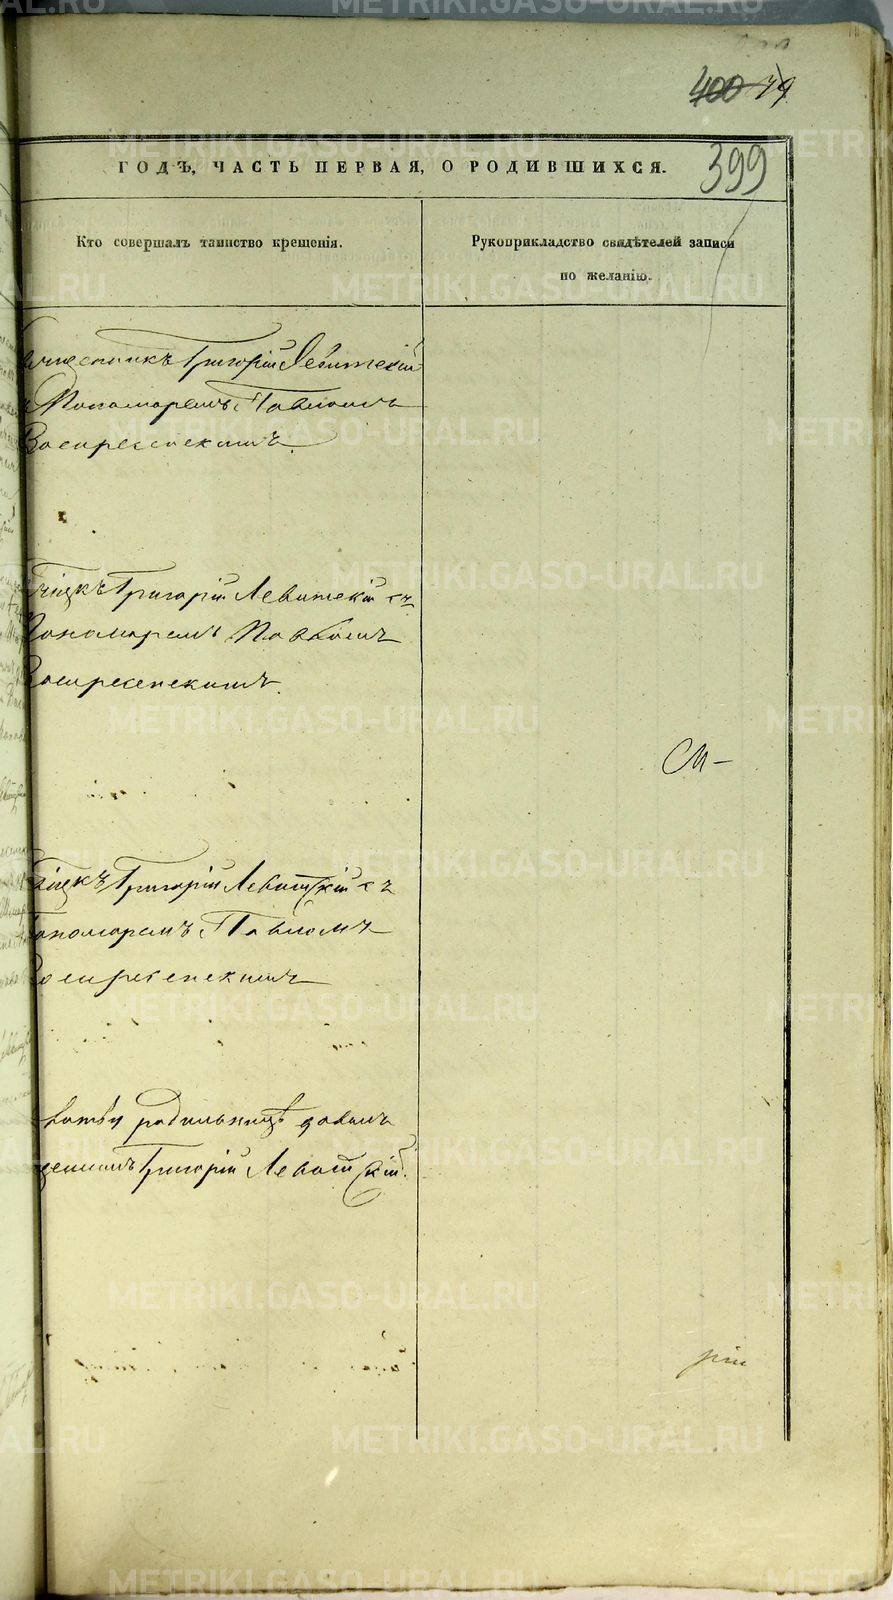 400 79
399
ГОДЪ, ЧАСТЬ ПЕРВАЯ, О РОДИВШИХСЯ.
Кто совершалъ таинство крещенія.
Рукоприкладство свидѣтелей записи
по желанію.
Григорій Левитскій
Пономаремъ Павломъ
Воскресенскимъ.
Григорій Левитскій съ
Пономаремъ Павломъ
Воскресенскимъ.
Григорій Левитскій съ
Пономаремъ Павломъ
Воскресенскимъ
молитву родильницѣ давалъ
Григорій Левитскій.
METRIKI.GASO-URAL.RU